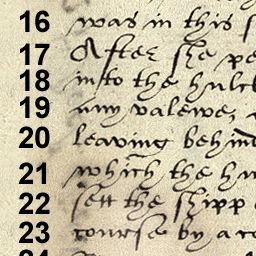 16 was in this s
17 After she pe
18 into the hulck
19 any valewe,
20 leaving behind
21 which the hu
22 sett the shipp
23 course by a co
24